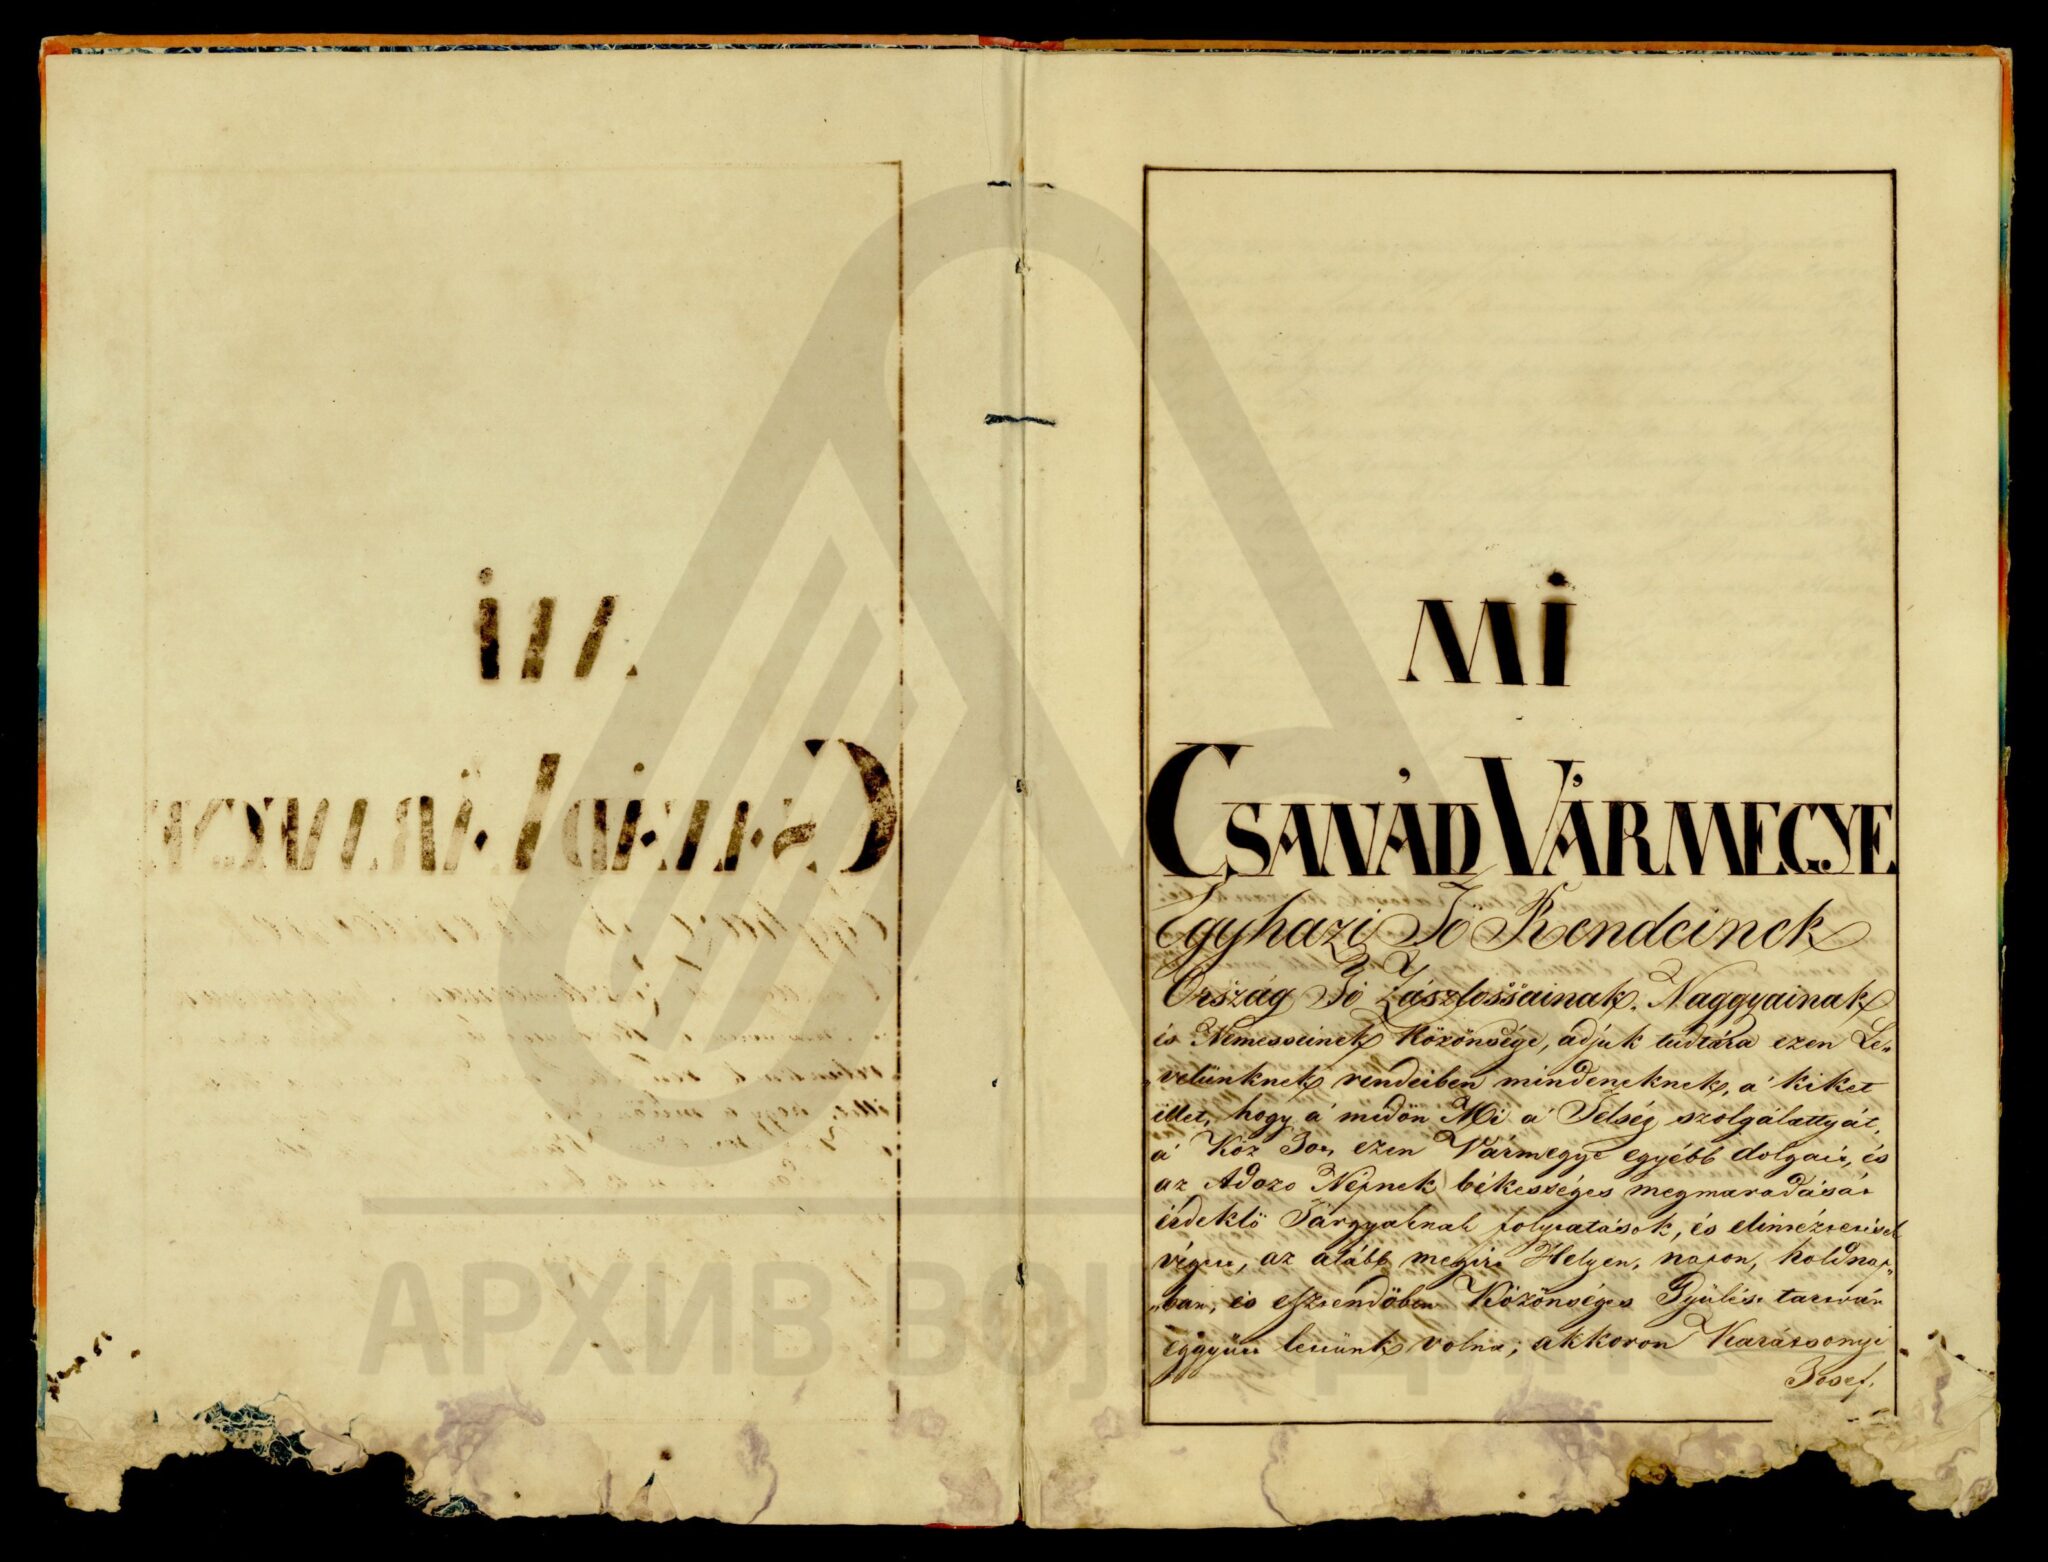 Mi
CSANÁD VÁRMEGYE
Egyházi Fő Rendeinek
Ország Fő Zászlossainak, Naggyainak
és Nemesseinek Közönsége, adjuk tudtára ezen Le„
„velünknek rendeiben mindeneknek, a' kiket
illet, hogy a' midőn Mi a' Felség szolgálattyát,
a' Köz Jót, ezen Vármegye egyébb dolgait, és
az Adozo Népnek békességes megmaradását
érdeklő Tárgyaknak folytatások, és elintézésének
végett, az alább megirt Helyen, napon, holdnap„
„ban, és esztendőben Közönséges Gyűlést tartván
eggyütt lettünk volna; akkoron Karátsonyi
Josef.
АРХИВ ВОЈВОДИНЕ